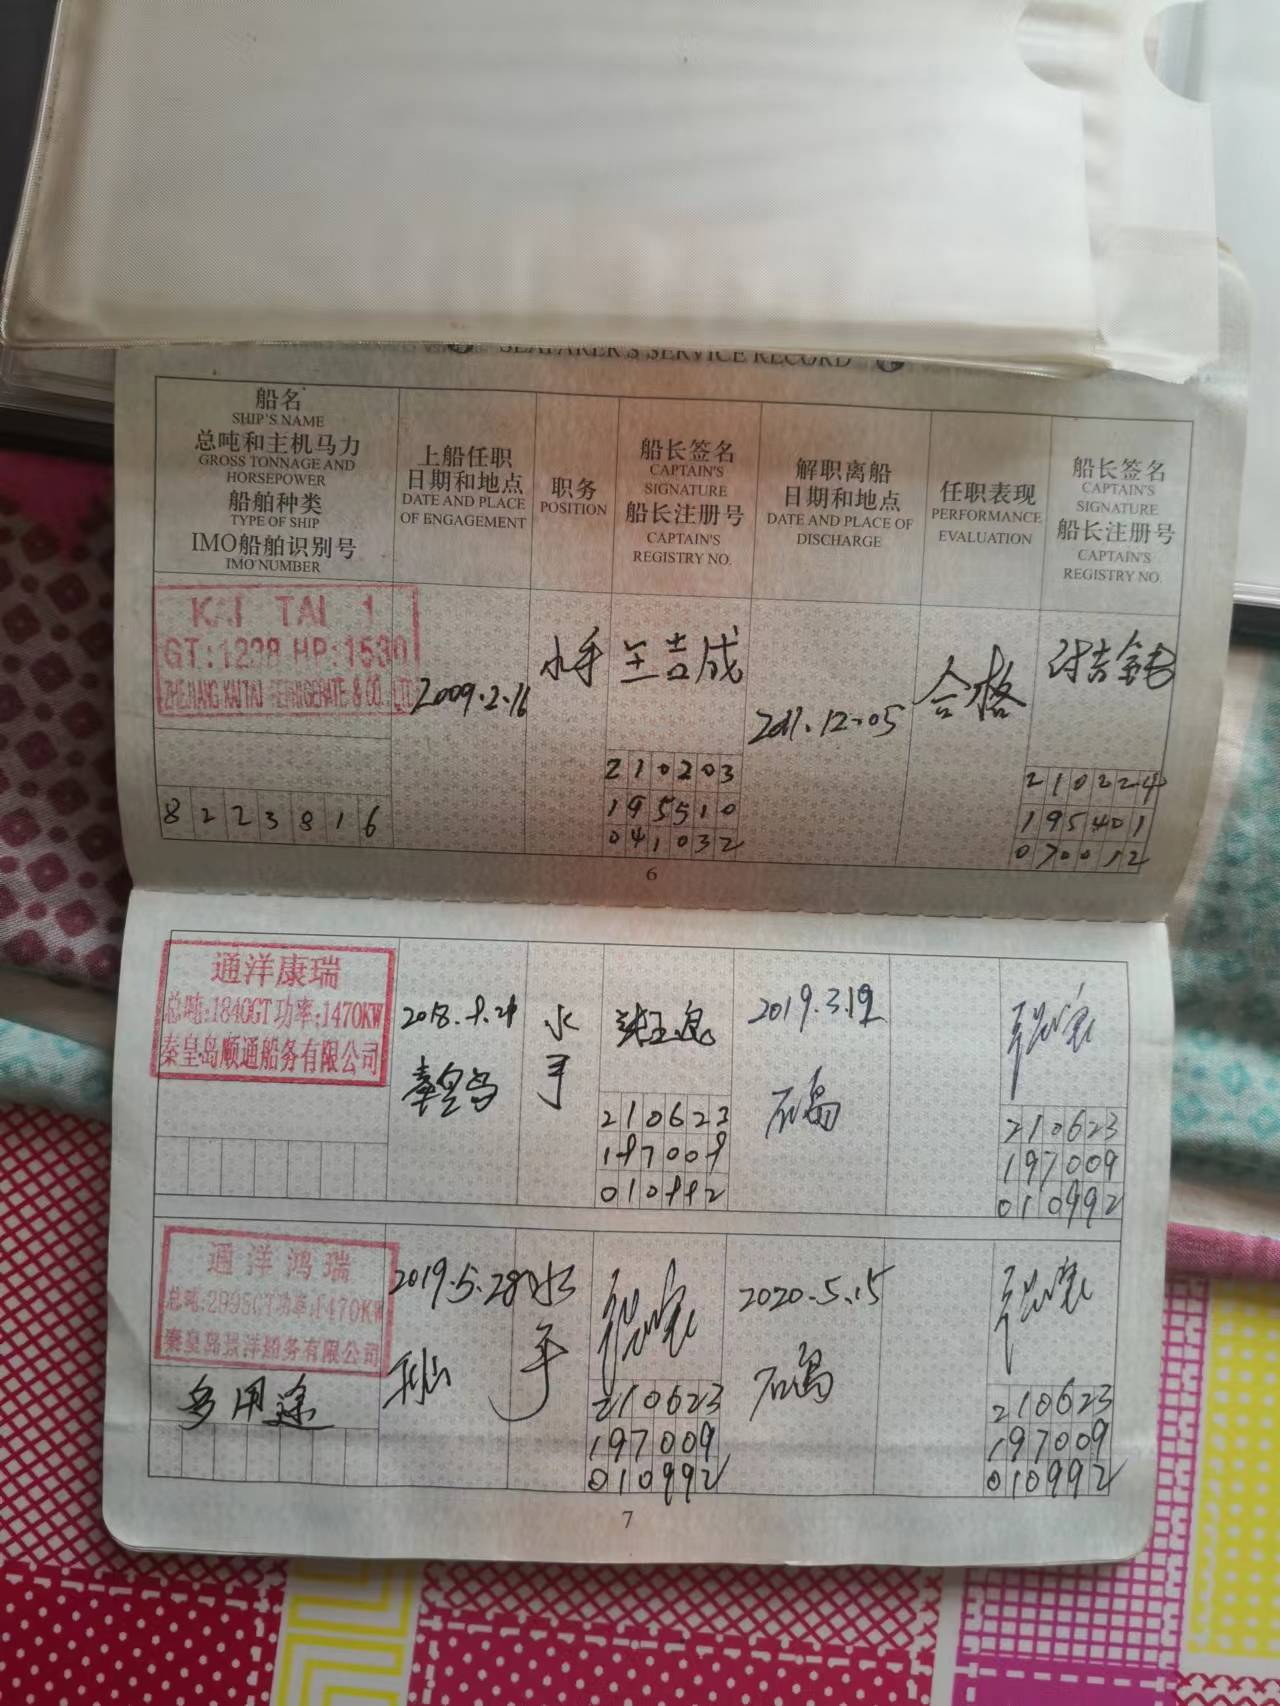 SEAFARER'S SERVICE RECORD
船名
SHIP'S NAME
总吨和主机马力
GROSS TONNAGE AND
HORSEPOWER
船舶种类
TYPE OF SHIP
IMO船舶识别号
IMO NUMBER
上船任职
日期和地点
DATE AND PLACE
OF ENGAGEMENT
职务
POSITION
船长签名
CAPTAIN'S
SIGNATURE
船长注册号
CAPTAIN'S
REGISTRY NO.
解职离船
日期和地点
DATE AND PLACE OF
DISCHARGE
任职表现
PERFORMANCE
EVALUATION
船长签名
CAPTAIN'S
SIGNATURE
船长注册号
CAPTAIN'S
REGISTRY NO.
KAI TAI 1
GT:1298 HP:1530
ZHEJIANG KAITAI REFRIGERATE & CO.,LTD
8223816
2009.2.16
水手
王吉成
210203
195510
041032
2011.12.05
合格
210224
195401
070012
6
通洋康瑞
总吨:1846GT功率:1470KW
秦皇岛顺通船务有限公司
2018.9.29
秦皇岛
水
手
210623
197009
010992
2019.3.19
石岛
210623
197009
010992
通洋鸿瑞
总吨:2995GT功率:1470KW
秦皇岛景洋船务有限公司
多用途
2019.5.28
水
手
210623
197009
010992
2020.5.15
石岛
210623
197009
010992
7